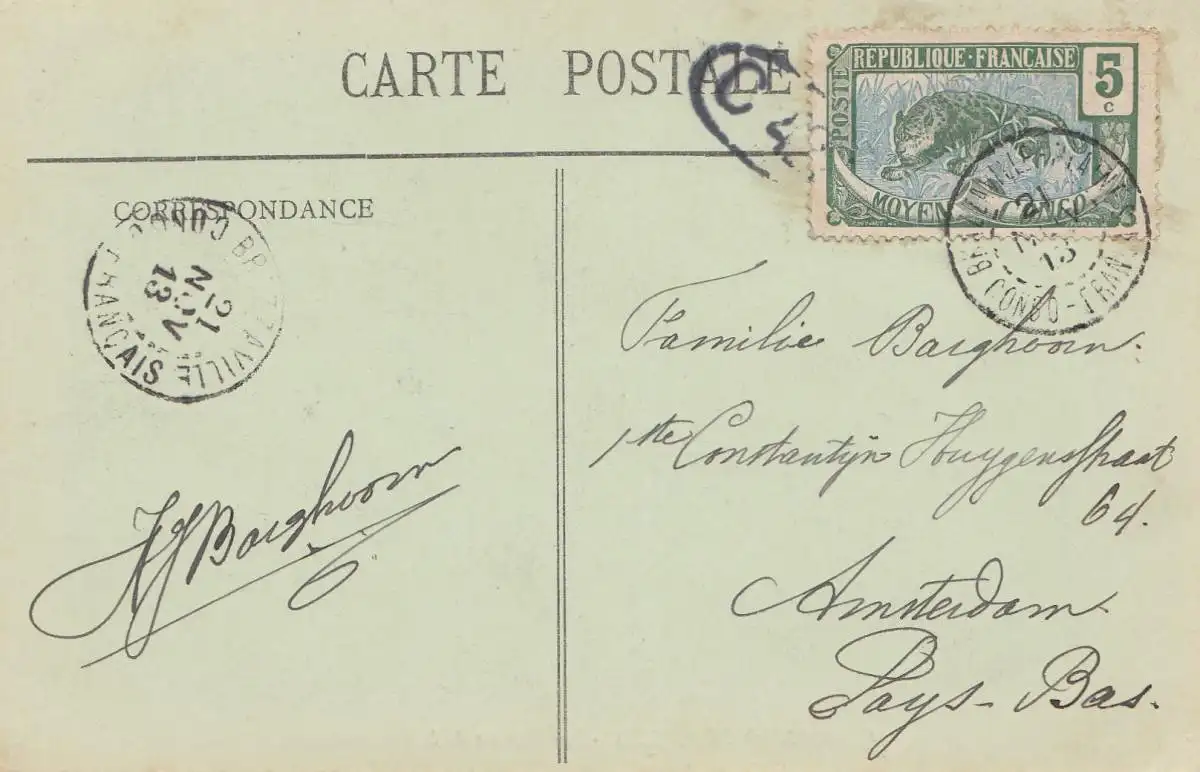 CARTE POSTALE
REPUBLIQUE·FRANÇAISE
POSTE
5
c
MOYEN CONGO
BRAZZAVILLE
21
NOV
13
CONGO-FRANÇAIS
CORRESPONDANCE
CONGO BRAZZAVILLE
21
NOV
13
FRANÇAIS
Familie Barghoorn.
1ste Constantijn Huygensstraat
64.
Amsterdam.
Pays-Bas.
Barghoorn